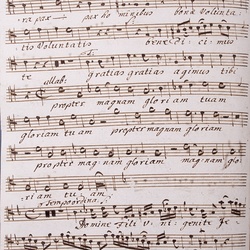 ra pax pax hominibus bonae Volunta
tis Voluntatis bene di ci mus
te gratias gratias agimus tibi
propter magnam gloriam tuam
gloriam tuam propter magnam gloriam
propter magnam gloriam magnam glo
riam tu am
Domine Fili Uni genite Je